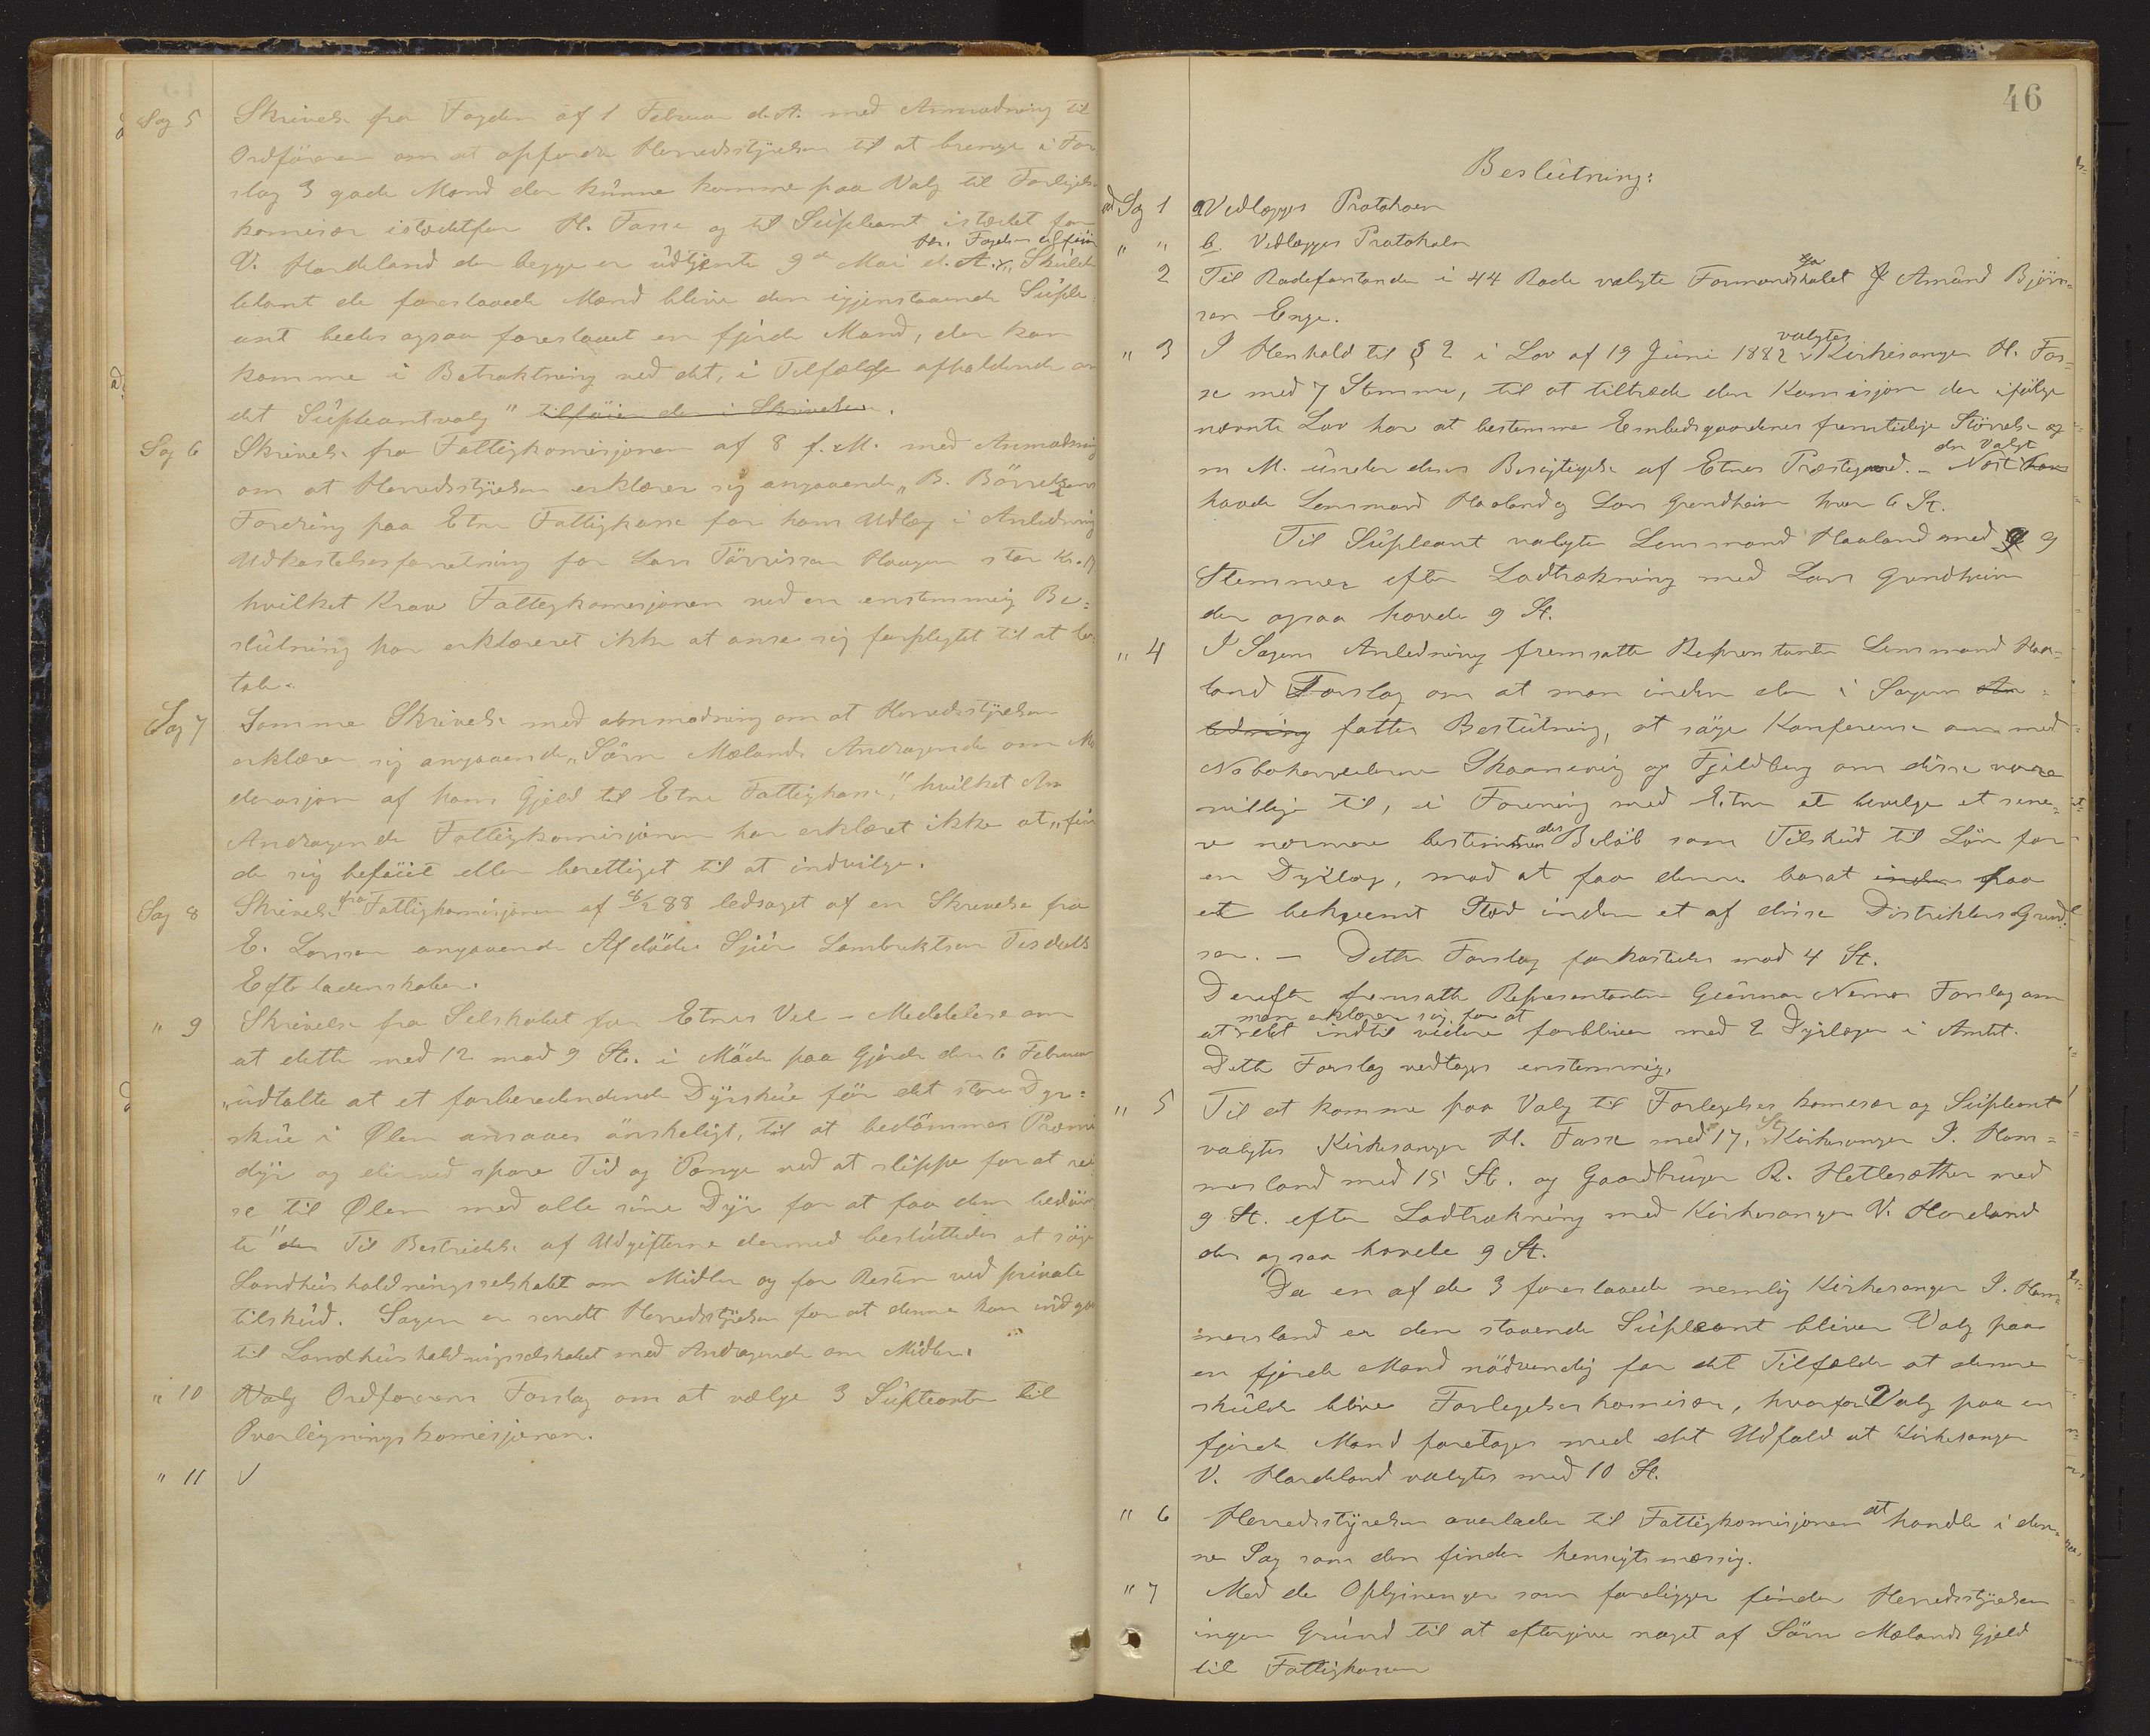 Sag 5 Skrivelse fra Fogden af 1 Februar d. A. med Anmodning til
Ordföreren om at opfordre Herredsstyrelsen til at bringe i For
slag 3 gode Mænd der kunne komme paa Valg til Forligels
komisær istedetfor H. Fasse og til Supleant istedet for
V. Hardeland der begge er udtjente 9de Mai d. A. „Skulde
blant de foreslaaede Mænd blive den igjenstaaende Suple-
ant bedes ogsaa foreslaaet en fjerde Mand, der kan
komme i Betraktning ved det, i Tilfælde afholdende
det Supleantvalg" tilföier den i Skrivelsen.
Sag 6 Skrivelse fra Fattigkomisjonen af 8 f. M. med Anmodning
om at Herredsstyrelsen erklærer sig angaaende „B. Börretzens
Fordring paa Etne Fattigkasse for hans Udlæg i Anledning
Udkastelsesforretning for Lars Törrissen Haugen stor Kr.
hvilket Krav Fattigkomisjonen ved en enstemmig Be-
slutning har erklæreret ikke at anse sig forpligtet til at be-
tale.
Sag 7 Samme Skrivelse med anmodning om at Herredsstyrelsen
erklærer sig angaaende „Sörn Mælands Andragende om Mo
derasjon af hans Gjeld til Etne Fattigkasse", hvilket An
Andragende Fattigkomisjonen har erklæret ikke at „fin
de sig beföiet eller berettiget til at indvilge.
Sag 8 Skrivelse fra Fattigkomisjonen af 8/2 88 ledsaget af en Skrivelse fra
E. Larsen angaaende Afdöde Sjur Lambriktsen Tesdals
Efterladenskaber.
" 9 Skrivelse fra Selskabet for Etnes Vel - Meddelelse om
at dette med 12 mod 9 St. i Möde paa Gjerde den 6 Februar
„udtalte at et forberedendende Dyrskue för det store Dyr-
skue i Ølen ansaaes önskeligt, til at bedömme Præmi
dyr og derved spare Tid og Penge ved at slippe for at rei
se til Ølen med alle sine Dyr for at faa dem bedöm
te" den Til Bestridelse af Udgifterne dermed besluttedes at söge
Landhusholdningsselskabet om Midler og for Resten ved private
tilskud. Sagen er sendt Herredsstyrelsen for at denne kan indgaa
til Landhusholdningsselskabet med Andragende om Midler.
" 10 Valg Ordförerens Forslag om at vælge 3 Supleanter til
Overligningskomisjonen.
" 11 V
46
Beslutning:
ad Sag 1 a Vedlægges Protokolen
" " b. Vedlægges Protokolen
2 Til Rodeforstander i 44 Rode valgte Formandskabet Amund Björn-
sen Enge.
" 3 I Henhold til § 2 i Lov af 19 Juni 1882 valgtes Kirkesanger H. Fas-
se med 7 Stemmer, til at tiltræde den Komisjon der ifölge
nævnte Lov har at bestemme Embedsgaardenes fremtidige Störrelse og
m M. under denes Besigtigelse af Etnes Præstegaard. - Næst den Valgte
havde Lensmand Haaland og Lars Grindheim hver 6 St.
Til Supleant valgtes Lensmand Haaland med 9
Stemmer efter Lodtrækning med Lars Grindheim
der ogsaa havde 9 St.
" 4 I Sagens Anledning fremsatte Representanten Lensmand Haa-
land Forslag om at man inden der i Sagen An-
ledning fattes Beslutning, at söge Konferense med
Naboherrederne Skaanevig og Fjeldberg om disse være
villige til, i Forening med Etne at bevilge et sene-
re nærmere bestemmendes Belöb som Tilskud til Lön for
en Dyrlæge, mod at faa denne bosat inden paa
et bekvemt Sted inden et af disse Distrikters Grænd-
ser. - Dette Forslag forkastedes mod 4 St.
Derefter fremsatte Representanten Gunnar Nernes Forslag om
at man erklærer sig for at rekt indtil videre forbliver med 2 Dyrlæger i Amtet.
Dette Forslag vedtoges enstemmig.
" 5 Til at komme paa Valg til Forligelseskomesær og Supleant
valgtes Kirkesanger H. Fasse med 17 St, Kirkesanger I. Ham-
mersland med 15 St. og Gaardbruger R. Hetlesæther med
9 St. efter Lodtrækning med Kirkesanger V. Hardeland
der ogsaa havde 9 St.
Da en af de 3 foreslaaede nemlig Kirkesanger I. Ham-
mersland er den staaende Supleant bliver Valg paa
en fjerde Mand nödvendig for det Tilfælde at denne
skulde blive Forligelseskomisær, hvorfor Valg paa en
fjerde Mand foretoges med det Udfald at Kirkesanger
V. Hardeland valgtes med 10 St.
" 6 Herredsstyrelsen overlader til Fattigkomisjonen at handle i den-
ne Sag som den finder hensigtsmæssig.
" 7 Med de Oplysninger som foreligger finder Herredsstyrelsen
ingen Grund til at eftergive noget af Sörn Mælands Gjeld
til Fattigkassen